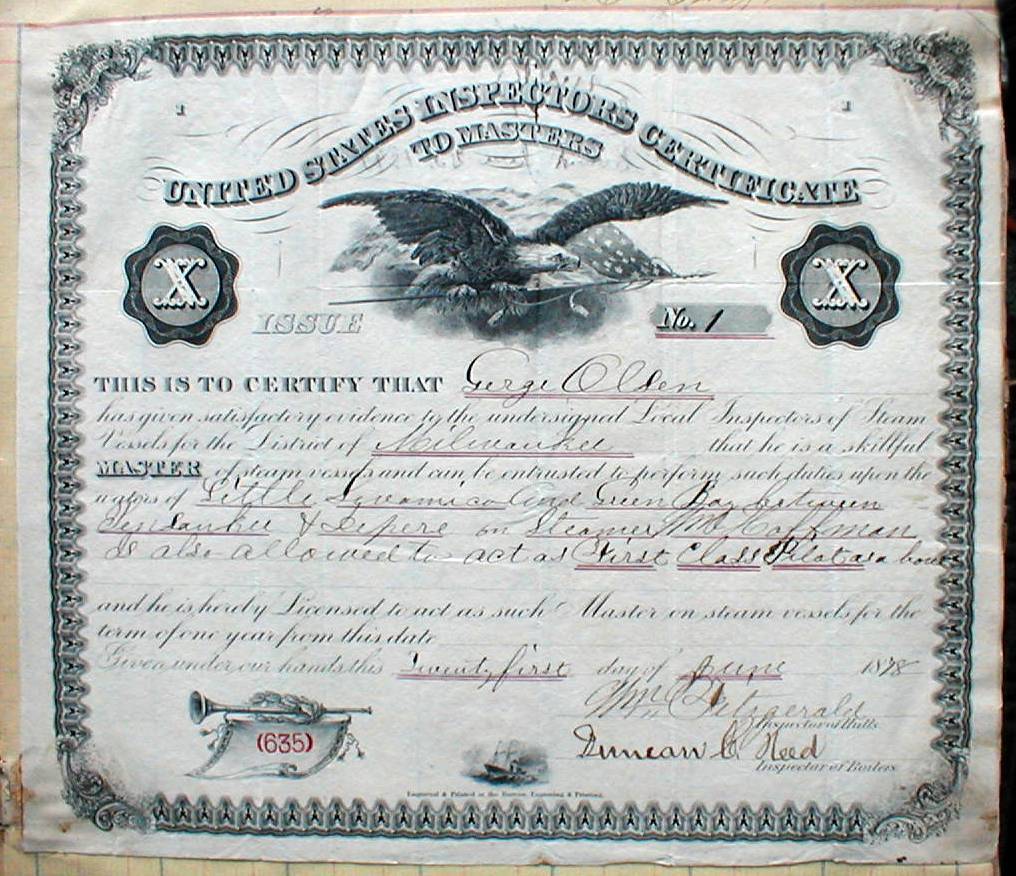 1 1
UNITED STATES INSPECTORS CERTIFICATE
TO MASTERS
X X
ISSUE No. 1
THIS IS TO CERTIFY THAT Gerge Olsen
has given satisfactory evidence to the undersigned Local Inspectors of Steam
Vessels for the District of Milwaukee that he is a skillful
MASTER of steam vessels and can be entrusted to perform such duties upon the
waters of Little and Green Bay between
& Depere on Steamer Wm
Is also allowed to act as First Class Pilot as a
and he is hereby Licensed to act as such Master on steam vessels for the
term of one year from this date
Given under our hands this Twenty first day of June 1878
Wm Fitzgerald
Inspector of Hulls
Duncan C Reed
Inspector of Boilers
(635)
Engraved & Printed at the Bureau, Engraving & Printing.